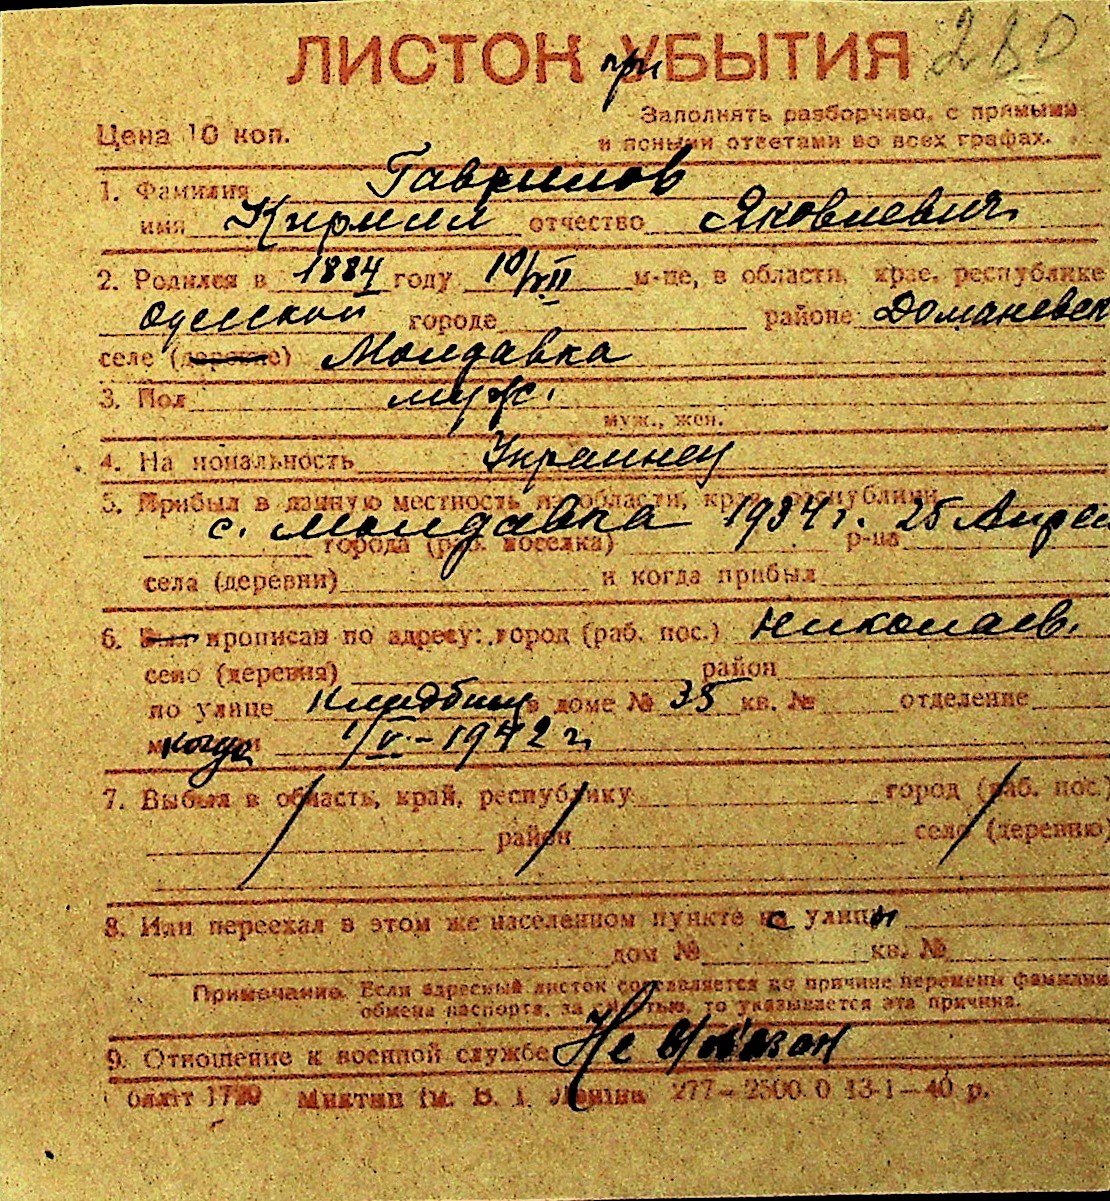 ЛИСТОК при УБЫТИЯ 280
Цена 10 коп.
Заполнять разборчиво, с прямыми
и ясными ответами во всех графах.
1. Фамилия Гаврилов
имя Кирилл отчество Яковлевич
2. Родился в 1884 году 10/VII м-це, в области, крае, республике
Одесской городе районе Доманевск
селе (деревне) Молдавка
3. Пол муж.
муж., жен.
4. На иональность Украинец
5. Прибыл в данную местность из области, края, республики
с. Молдавка 1934 г. 25 Апрел
города (раб. поселка) р-на
села (деревни) и когда прибыл
6. Был прописан по адресу: город (раб. пос.) Николаев.
село (деревня) район
по улице Кладбищ в доме № 35 кв. № отделение
когда 1/V - 1942 г.
7. Выбыл в область, край, республику город (раб. пос.)
район село (деревню)
8. Или переехал в этом же населенном пункте с улицы
дом № кв. №
Примечание. Если адресный листок составляется по причине перемены фамилии
обмена паспорта, за смертью, то указывается эта причина.
9. Отношение к военной службе Не
277-2500.0 13-1-40 р.